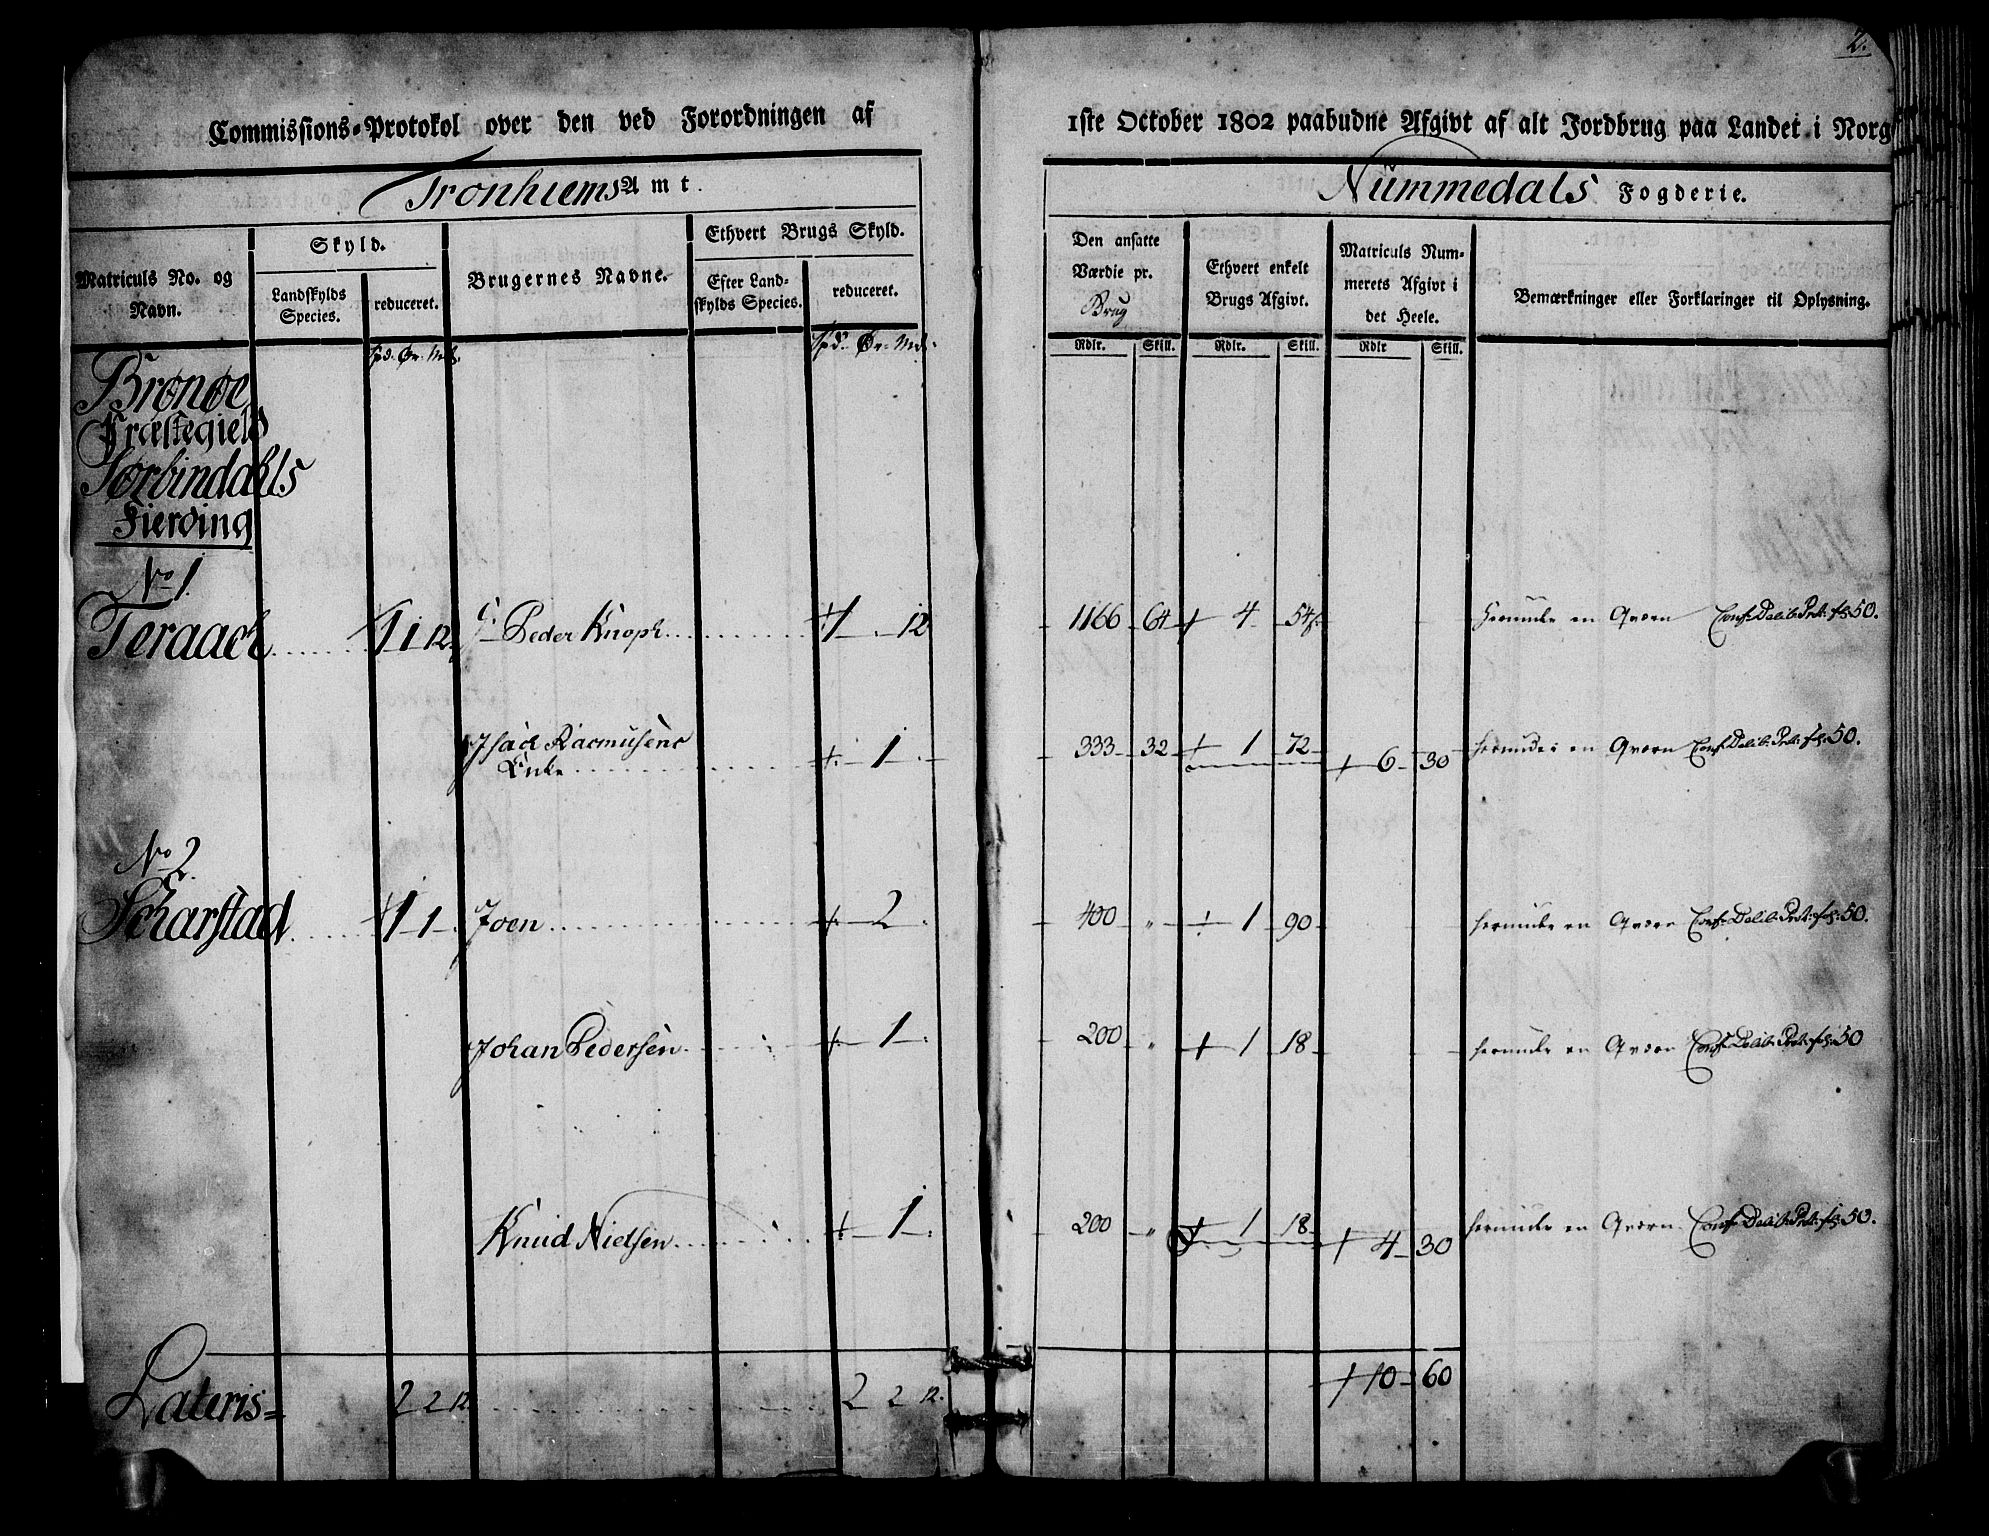 2.
Commissions-Protokol over den ved Forordningen af 1ste October 1802 paabudne Afgivt af alt Jordbrug paa Landet i Norg
Tronhiems Amt.
Nummedals Fogderie.
Matriculs No. og Navn.
Skyld.
Landskylds Species.
reduceret.
Brugernes Navne.
Ethvert Brugs Skyld.
Efter Landskylds Species.
reduceret.
Den ansatte Værdie pr. Brug
Ethvert enkelt Brugs Afgivt.
Matriculs Nummerets Afgivt i det Heele.
Bemærkninger eller Forklaringer til Oplysning.
Spd. Ør. Mk. Spd. Ør. Mk. Rdlr. Skill. Rdlr. Skill. Rdlr Skill.
Brønøe
Præstegield
Sørbindahls
Fierding
No 1.
Teraack 1 1 12. Peder Knoph 1 12 1166 64 4 54 herunder en Qværn Conf: Delib: Prot: fol: 50.
Isach Rasmusens
Enke 1 333 32 1 72 6 30 herunder en Qværn Conf: Delib: Prot: fol: 50.
No 2.
Scharstad 1 1 Joen 2 400 " 1 90 herunder en Qværn Conf: Delib: Prot: fol: 50.
Johan Pedersen 1 200 " 1 18 herunder en Qværn Conf: Delib: Prot: fol: 50
Knud Nielsen 1 200 " 1 18 4 30 herunder en Qværn. Conf: Delib: Prot: fol: 50.
Lateris= 2 2 12 2 2 12. 10 60